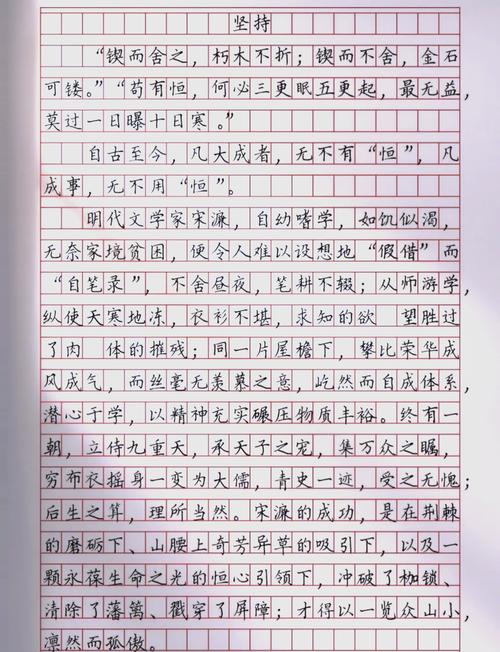 坚持
“锲而舍之，朽木不折；锲而不舍，金石
可镂。”“苟有恒，何必三更眠五更起，最无益，
莫过一日曝十日寒。”
自古至今，凡大成者，无不有“恒”，凡
成事，无不用“恒”。
明代文学家宋濂，自幼嗜学，如饥似渴，
无奈家境贫困，便令人难以设想地“假借”而
“自笔录”，不舍昼夜，笔耕不辍；从师游学，
纵使天寒地冻，衣衫不堪，求知的欲 望胜过
了肉 体的摧残；同一片屋檐下，攀比荣华成
风成气，而丝毫无羡慕之意，屹然而自成体系，
潜心于学，以精神充实碾压物质丰裕。终有一
朝，立侍九重天，承天子之宠，集万众之瞩，
穷布衣摇身一变为大儒，青史一迹，受之无愧；
后生之算，理所当然。宋濂的成功，是在荆棘
的磨砺下、山腰上奇芳异草的吸引下，以及一
颗永葆生命之光的恒心引领下，冲破了枷锁、
清除了藩篱、戳穿了屏障；才得以一览众山小，
凛然而孤傲。